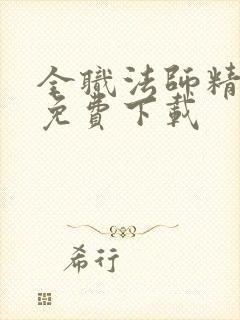 全職法師精
免費下載
希行